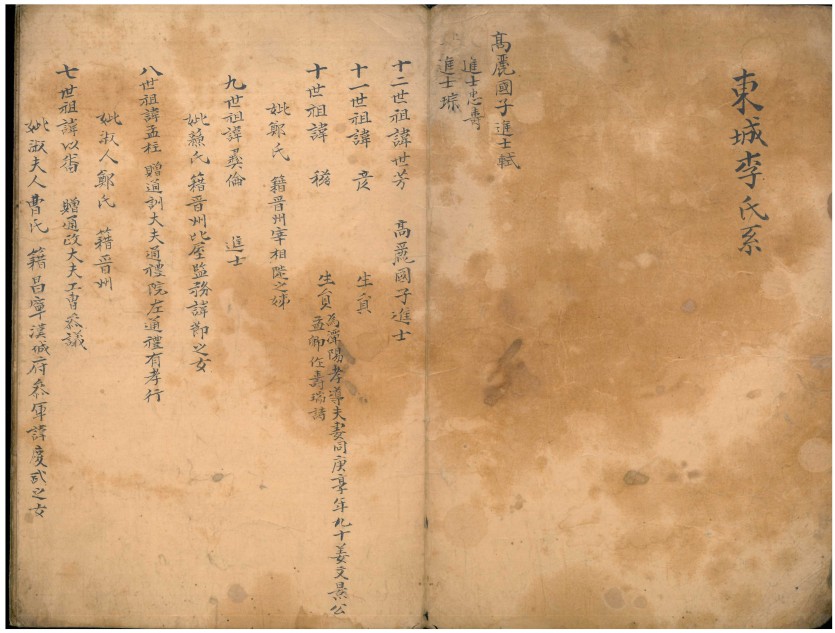 東城李氏系
高麗國子進士軾
進士忠壽
進士琮
十二世祖諱世芳 高麗國子進士
十一世祖諱 彦 生員
十世祖諱 生員 為溧陽孝導夫妻同庚享年九十姜文景公
孟卿作壽瑞詩
妣鄭氏 籍晋州宰相陟之娣
九世祖諱彛倫 進士
妣蘇氏 籍晋州北屋監務諱節之女
八世祖諱孟柱 贈通訓大夫通禮院左通禮有孝行
妣淑人鄭氏 籍晋州
七世祖諱以 贈通政大夫工曹叅議
妣淑夫人曹氏 籍昌寧漢城府叅軍諱慶武之女